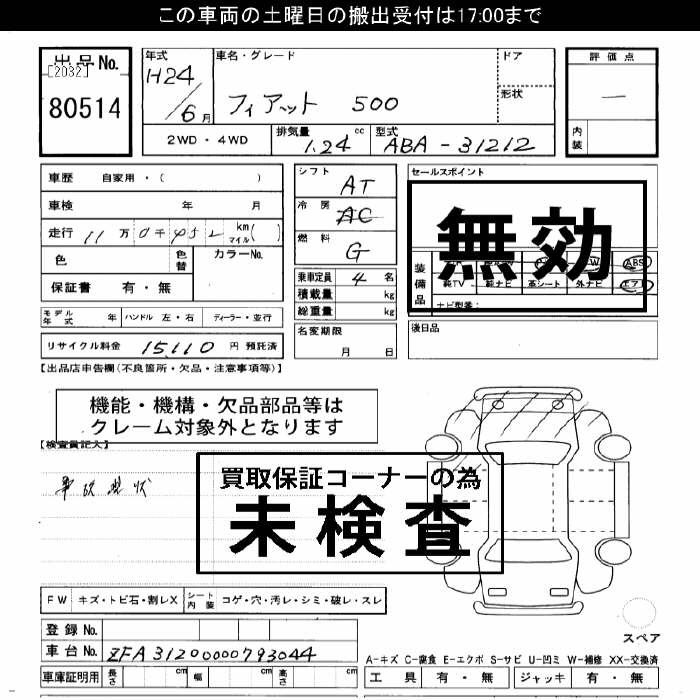 この車両の土曜日の搬出受付は17:00まで
出品No.
[2032]
80514
年式
H24
/6月
車名・グレード
フィアット 500
ドア
形状
評価点
—
内装
2WD・4WD
排気量
1.24 cc
型式
ABA-31212
車歴 自家用・( )
車検 年 月
走行 11万0千452 km マイル( )
色
色替
カラーNo.
保証書 有・無
モデル年式 年
ハンドル 左・右
ディーラー・並行
リサイクル料金 15,110 円 預託済
シフト
AT
冷房
AC
燃料
G
乗車定員 4 名
積載量 kg
総重量 kg
名変期限
月 日
セールスポイント
無効
装備品
ABS
純TV 純ナビ 革シート 外ナビ エアB
ナビ型番:
後日品
【出品店申告欄(不良箇所・欠品・注意事項等)】
機能・機構・欠品部品等は
クレーム対象外となります
【検査員記入】
事故現状
買取保証コーナーの為
未検査
FW キズ・トビ石・割レX
シート内装 コゲ・穴・汚レ・シミ・破レ・スレ
登録No.
車台No. ZFA31200000793044
車庫証明用 長さ cm 幅 cm 高さ cm
スペア
A-キズ C-腐食 E-エクボ S-サビ U-凹ミ W-補修 XX-交換済
工具 有・無 ジャッキ 有・無